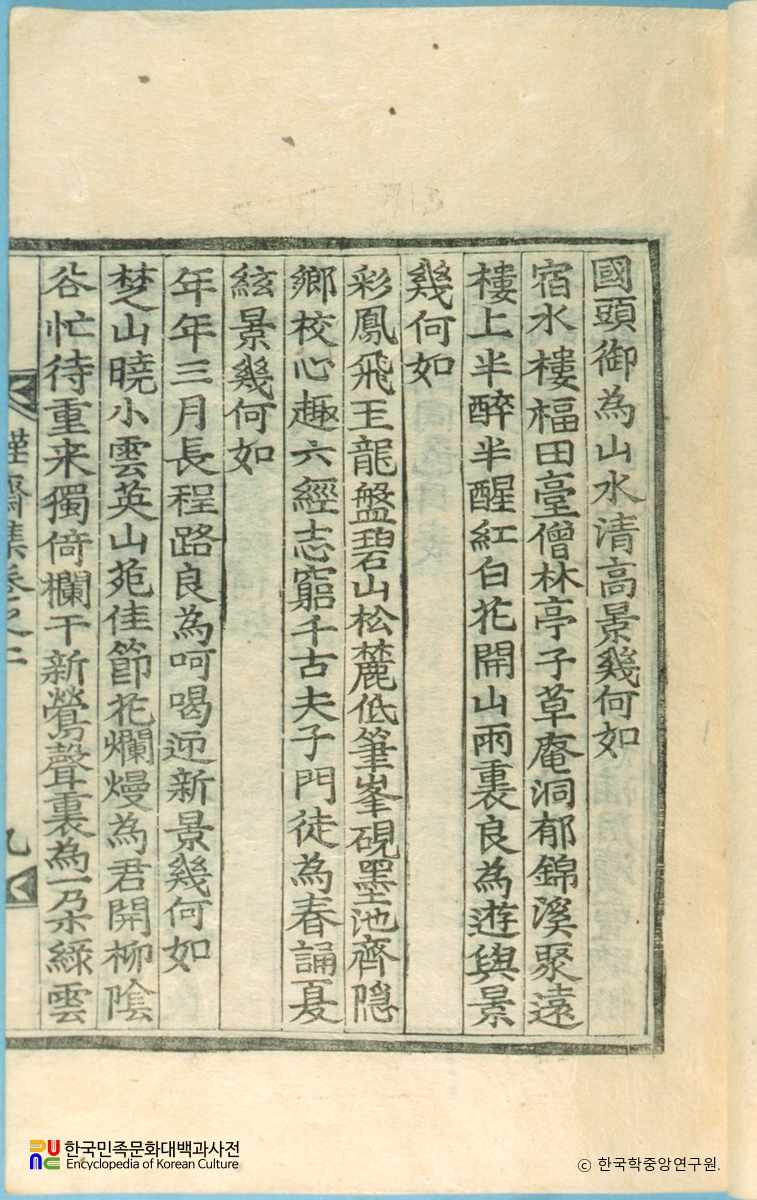 國頭御為山水清高景幾何如
宿水樓福田臺僧林亭子草庵洞郁錦溪聚遠
樓上半醉半醒紅白花開山雨裏良為遊興景
幾何如
彩鳳飛玉龍盤碧山松麓低筆峯硯墨池齊隠
鄉校心趣六經志窮千古夫子門徒為春誦夏
絃景幾何如
年年三月長程路良為呵喝迎新景幾何如
楚山曉小雲英山苑佳節花爛熳為君開柳陰
谷忙待重来獨倚欄干新鶯聲裏為一朶綠雲
謹齋集卷之二
九
한국민족문화대백과사전
Encyclopedia of Korean Culture
© 한국학중앙연구원.